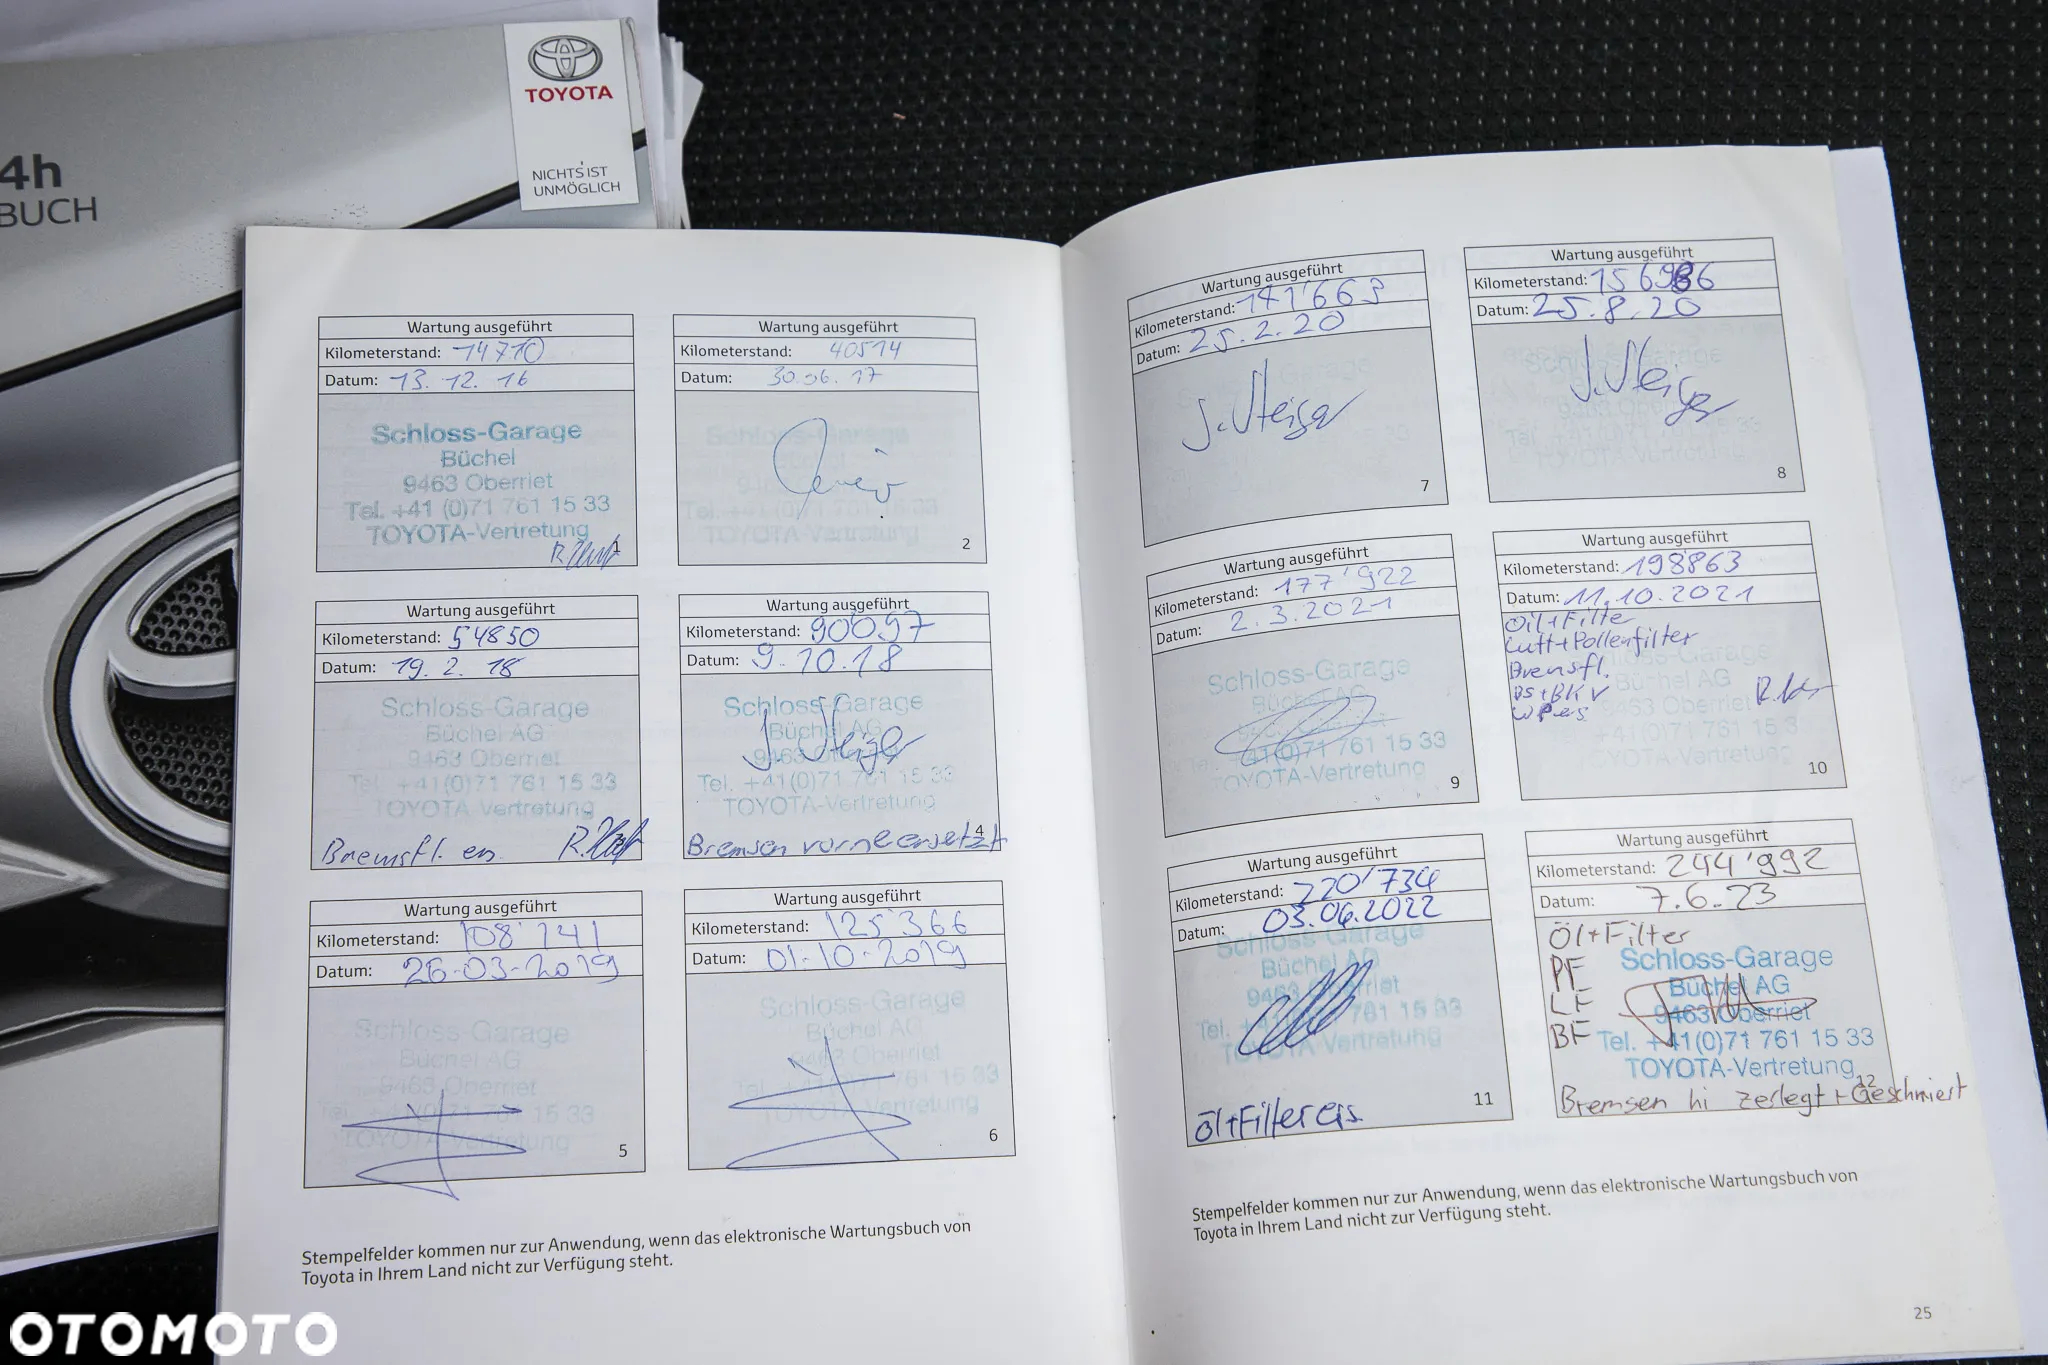 4h
BUCH
TOYOTA
NICHTS IST
UNMÖGLICH
Wartung ausgeführt
Kilometerstand: 14710
Datum: 13. 12. 16
Schloss-Garage
Büchel
9463 Oberriet
Tel. +41 (0)71 761 15 33
TOYOTA-Vertretung
1
Wartung ausgeführt
Kilometerstand: 40514
Datum: 30.06.17
Schloss-Garage
Büchel
9463 Oberriet
Tel. +41 (0)71 761 15 33
TOYOTA-Vertretung
2
Wartung ausgeführt
Kilometerstand: 54850
Datum: 19. 2. 18
Schloss-Garage
Büchel AG
9463 Oberriet
Tel. +41(0)71 761 15 33
TOYOTA-Vertretung
Bremsfl. en
Wartung ausgeführt
Kilometerstand: 90097
Datum: 9.10.18
Schloss-Garage
Büchel AG
9463 Oberriet
Tel. +41(0)71 761 15 33
TOYOTA-Vertretung
4
Bremsen vorne ersetzt
Wartung ausgeführt
Kilometerstand: 108'141
Datum: 26-03-2019
Schloss-Garage
Büchel AG
9463 Oberriet
Tel. +41(0)71 761 15 33
TOYOTA-Vertretung
5
Wartung ausgeführt
Kilometerstand: 125'366
Datum: 01-10-2019
Schloss-Garage
Büchel AG
9463 Oberriet
Tel. +41(0)71 761 15 33
TOYOTA-Vertretung
6
Stempelfelder kommen nur zur Anwendung, wenn das elektronische Wartungsbuch von
Toyota in Ihrem Land nicht zur Verfügung steht.
Wartung ausgeführt
Kilometerstand: 141'663
Datum: 25.2.20
J. Steiger
7
Wartung ausgeführt
Kilometerstand: 156986
Datum: 25.8.20
Schloss-Garage
J. Steiger
9463 Oberriet
Tel. +41(0)71 761 15 33
TOYOTA-Vertretung
8
Wartung ausgeführt
Kilometerstand: 177'922
Datum: 2.3.2021
Schloss-Garage
Büchel AG
9463 Oberriet
Tel. +41(0)71 761 15 33
TOYOTA-Vertretung
9
Wartung ausgeführt
Kilometerstand: 198863
Datum: 11.10.2021
Öil+Filter
Luft+Pollenfilter
Bremsfl.
BS+BKV
Schloss-Garage
Büchel AG
9463 Oberriet
Tel. +41(0)71 761 15 33
TOYOTA-Vertretung
10
Wartung ausgeführt
Kilometerstand: 220'734
Datum: 03.06.2022
Schloss-Garage
Büchel AG
9463 Oberriet
Tel. +41(0)71 761 15 33
TOYOTA-Vertretung
11
Öl+Filter ers.
Wartung ausgeführt
Kilometerstand: 244'992
Datum: 7.6.23
Öl+Filter
PF
LF
BF
Schloss-Garage
Büchel AG
9463 Oberriet
Tel. +41(0)71 761 15 33
TOYOTA-Vertretung
12
Bremsen hi zerlegt + Geschmiert
Stempelfelder kommen nur zur Anwendung, wenn das elektronische Wartungsbuch von
Toyota in Ihrem Land nicht zur Verfügung steht.
25
OTOMOTO